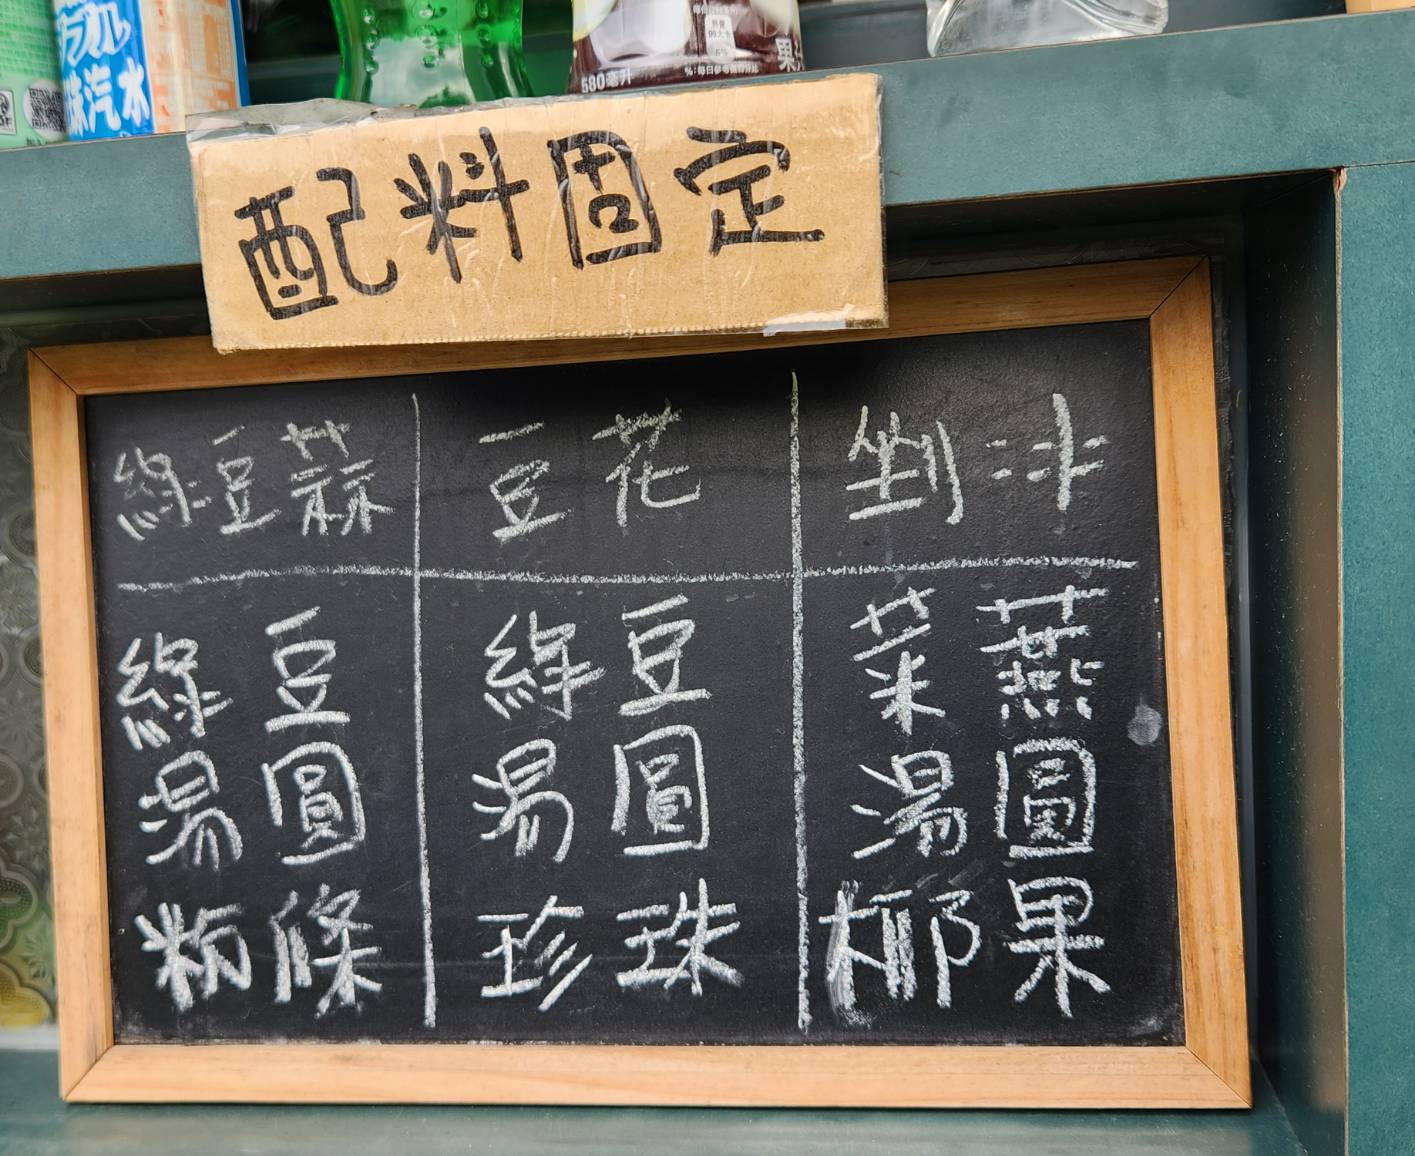 汽水
580毫升
配料固定
綠豆蒜 豆花 剉冰
綠豆 綠豆 菜燕
湯圓 湯圓 湯圓
粉條 珍珠 椰果